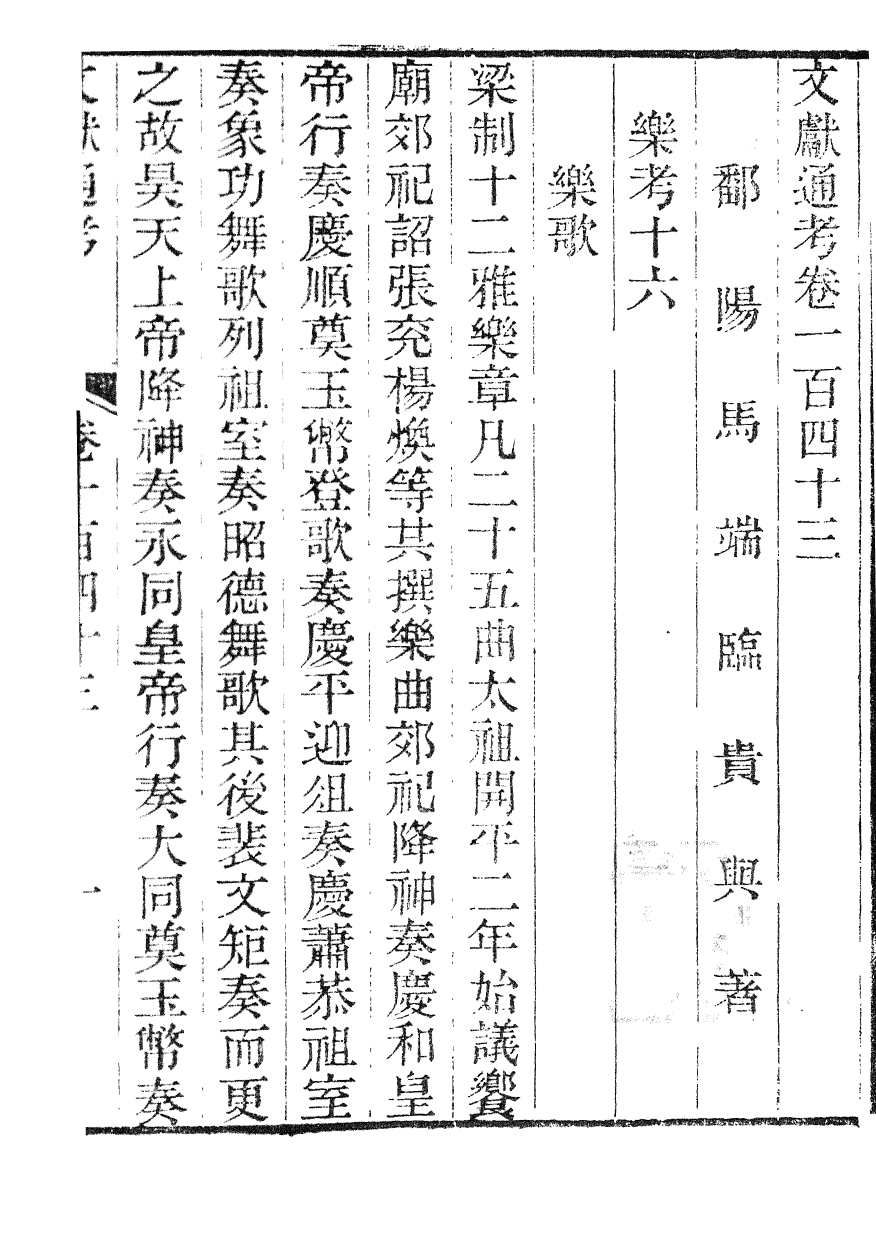 文獻通考卷一百四十三
鄱陽馬端臨貴與著
樂考十六
樂歌
梁制十二雅樂章凡二十五曲太祖開平二年始議饗
廟郊祀詔張兖楊煥等共撰樂曲郊祀降神奏慶和皇
帝行奏慶順奠玉幣登歌奏慶平迎俎奏慶蕭恭祖室
奏象功舞歌列祖室奏昭德舞歌其後裴文矩奏而更
之故昊天上帝降神奏永同皇帝行奏大同奠玉幣奏
文獻通考
卷一百四十三
一